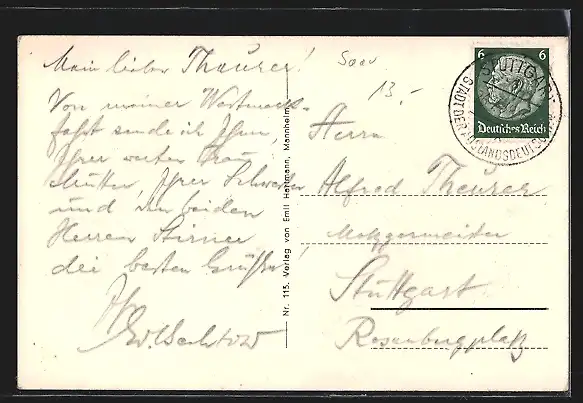 Mein lieber Theurer!
Von meiner Westmark-
fahrt sende ich Ihnen,
Ihrer werten Frau
Mutter, Ihrer Schwester
und den beiden
Herren Stirner
die besten Grüße!
Ihr
Saar
13.-
Herrn
Alfred Theurer
Metzgermeister
Stuttgart
Rosenbergplatz
Nr. 115. Verlag von Emil Hartmann, Mannheim.
6 6
Deutsches Reich
STUTTGART
STADT DER AUSLANDSDEUTSCHEN